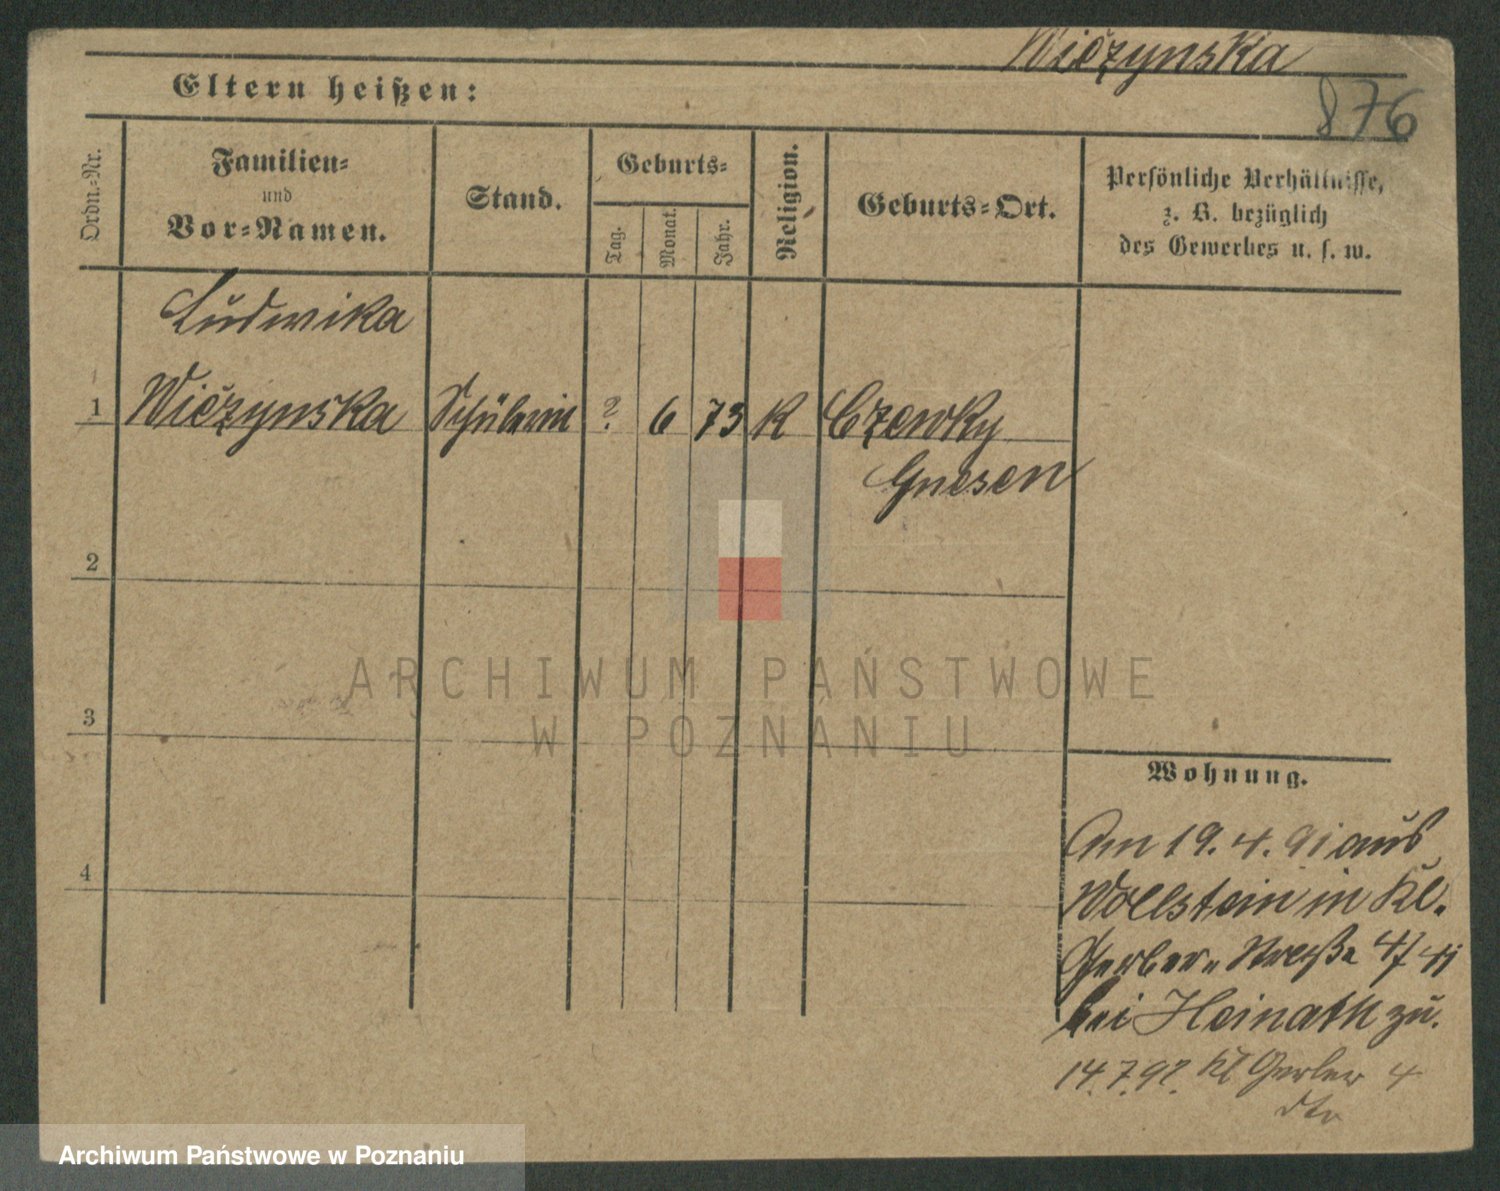 Wiczynska
876
Eltern heißen:
Ordn.=Nr.
Familien=
und
Vor=Namen.
Stand.
Geburts=
Tag.
Monat.
Jahr.
Religion.
Geburts=Ort.
Persönliche Verhältnisse,
z. B. bezüglich
des Gewerbes u. s. w.
Ludwika
1 Wiczynska Schülerin ? 6 73 K Czewky
Gnesen
2
3
4
ARCHIWUM PAŃSTWOWE
W POZNANIU
Wohnung.
Am 19. 4. 91 aus
Wollstein in Kl.
Gerber= Straße 4/
bei Heinath zu.
14.7.92. Kl Gerber 4
dto
Archiwum Państwowe w Poznaniu